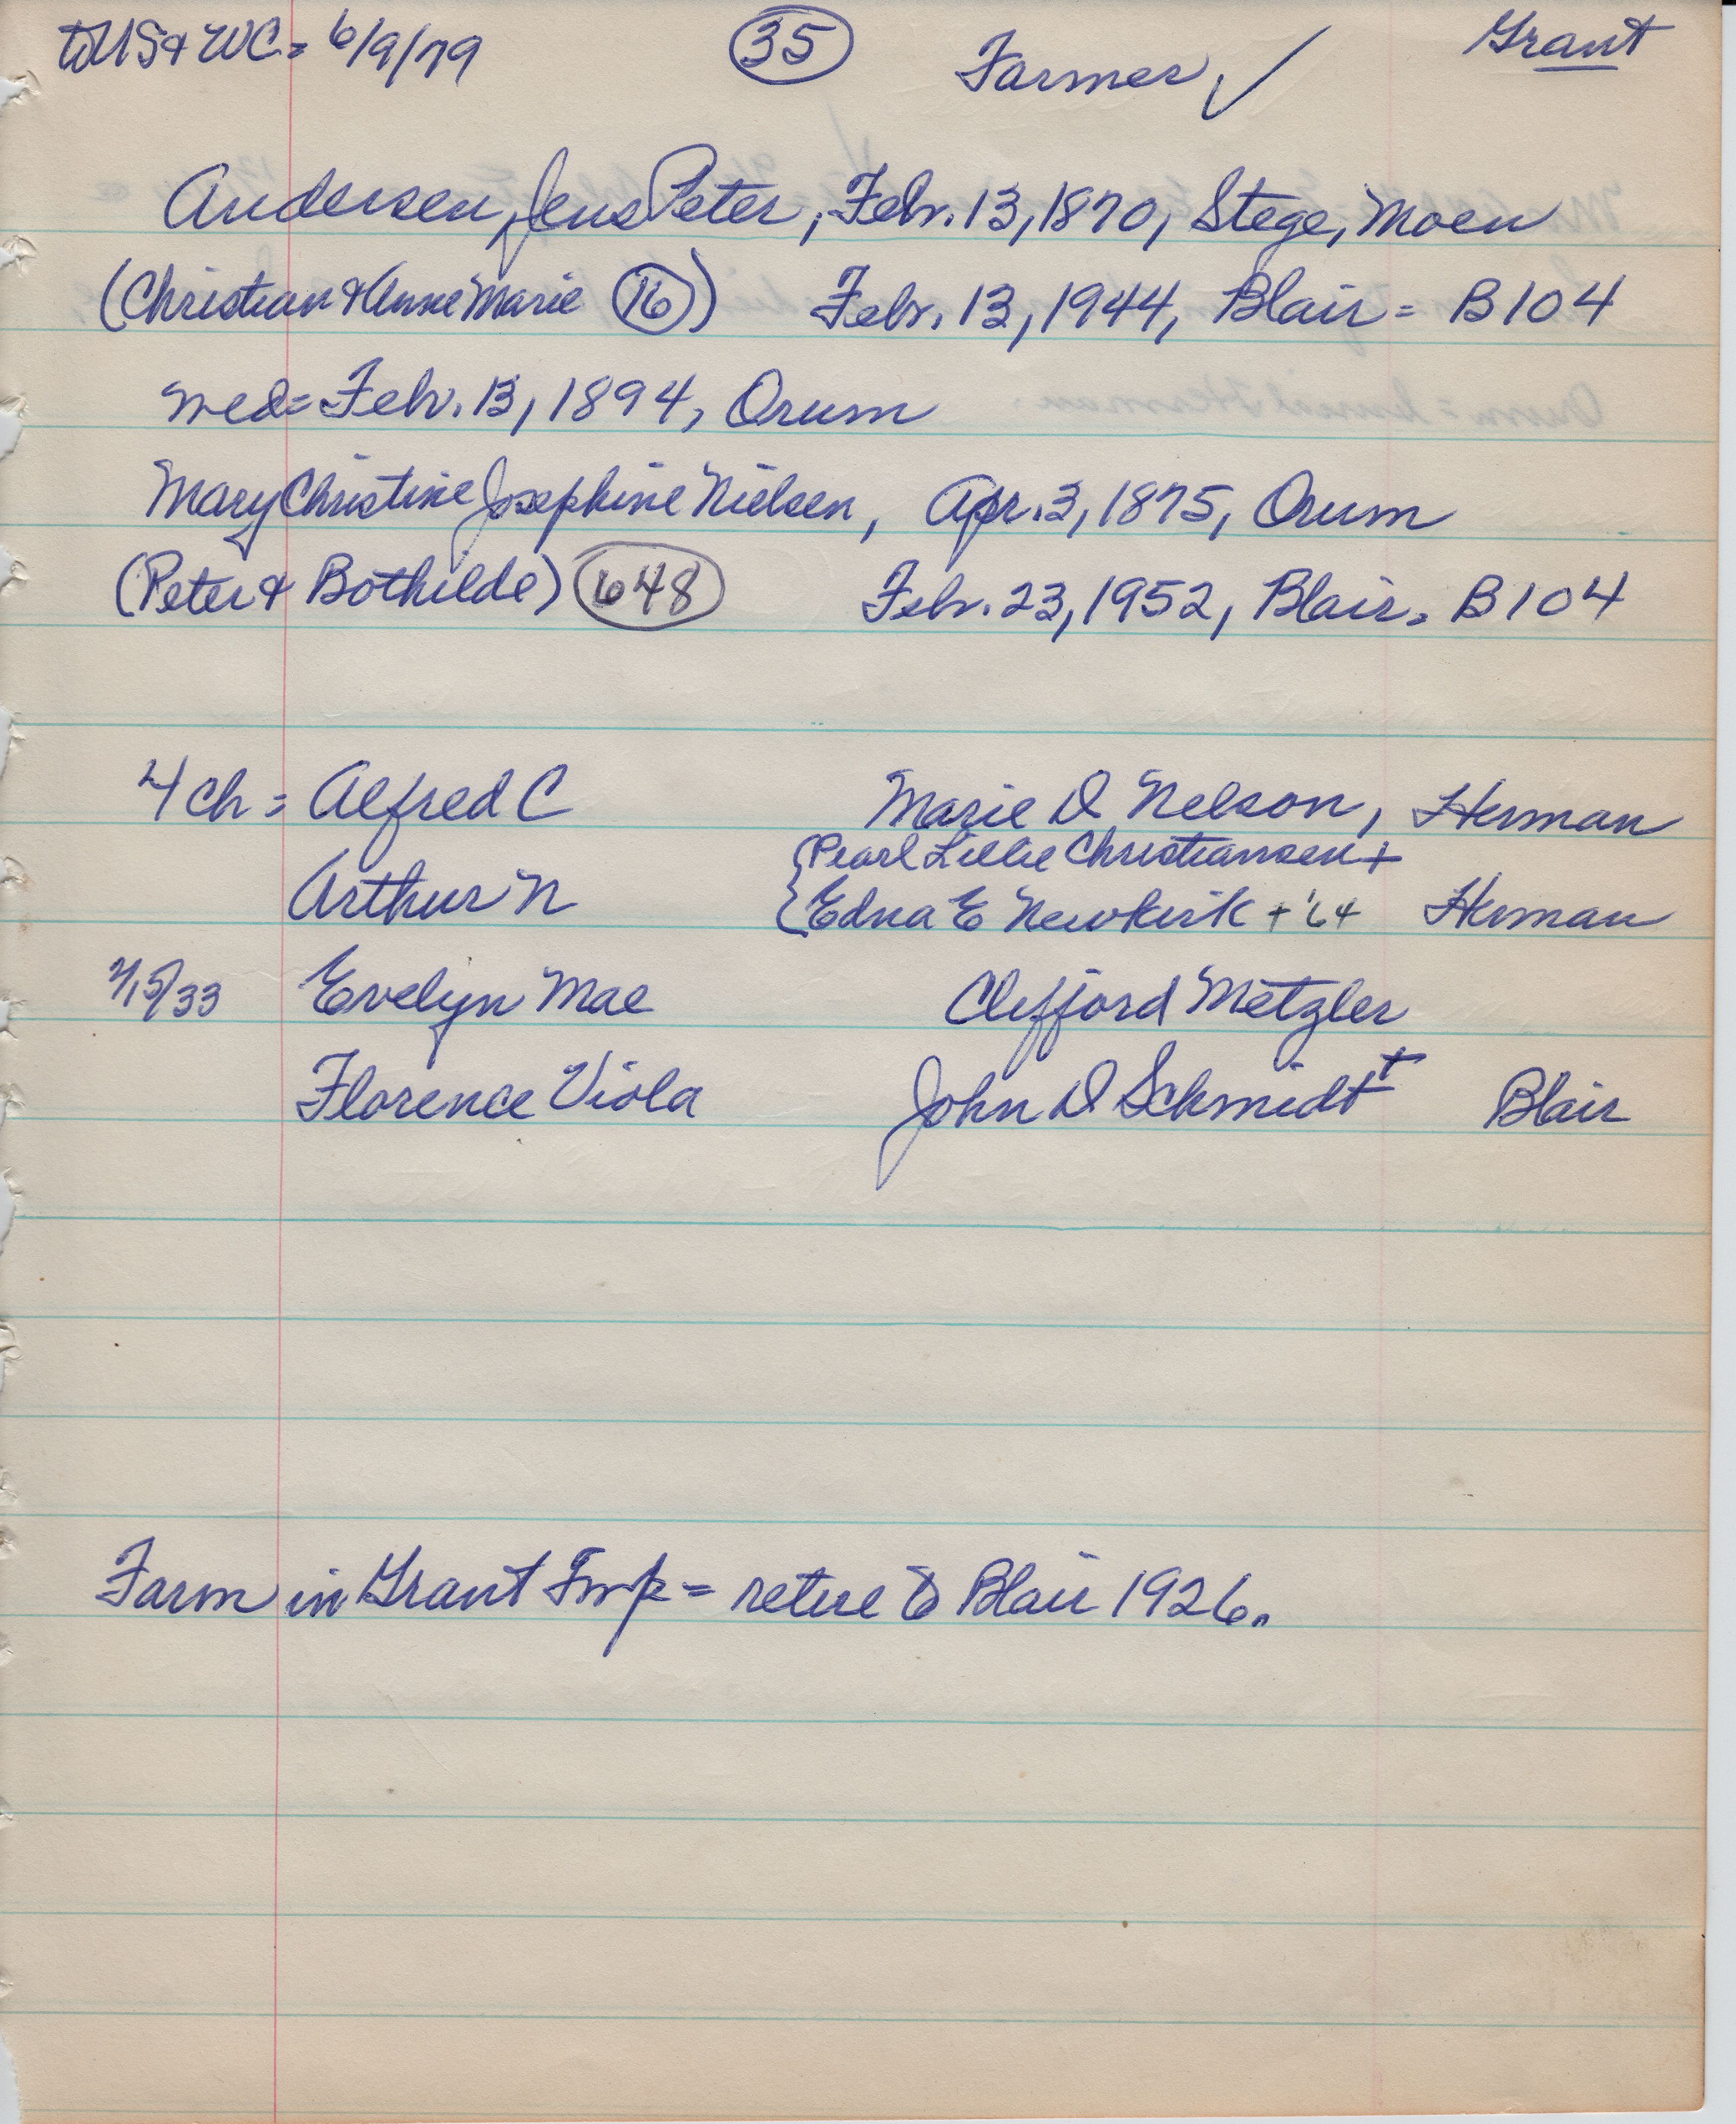 to US & WC = 6/9/79 (35) Farmer ✓ Grant
Andersen, Jens Peter, Feb. 13, 1870, Stege, Moen
(Christian & Anne Marie (16)) Feb. 13, 1944, Blair = B104
wed = Feb. 13, 1894, Orum
Mary Christine Josephine Nielsen, Apr. 3, 1875, Orum
(Peter & Bothilde) (648) Feb. 23, 1952, Blair = B104
4 ch = Alfred C Marie D Nelson, Herman
{Pearl Lillie Christiansen +
Arthur N {Edna E Newkirk + '64 Herman
Evelyn Mae Clifford Metzler
Florence Viola John D Schmidt + Blair
Farm in Grant Twp = retire to Blair 1926.